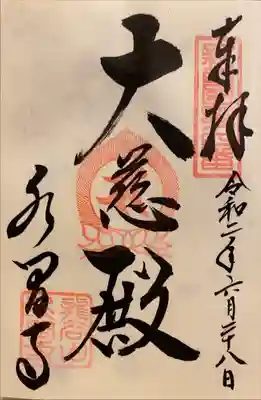 奉拝
令和二年六月二十八日
大慈殿
水間寺